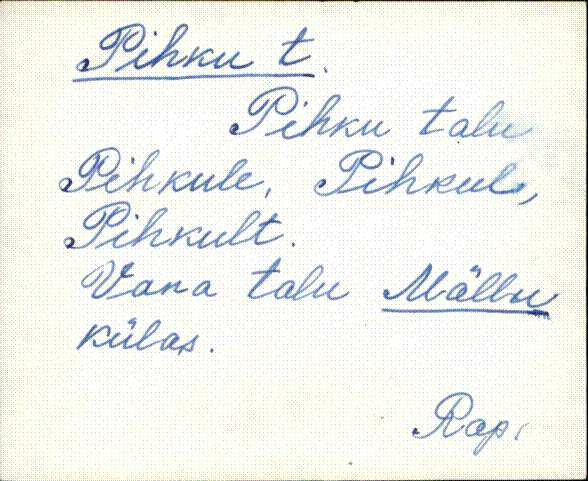 Pihku t.
Pihku talu
Pihkule, Pihkul,
Pihkult.
Vana talu Mällu
külas.
Rap.